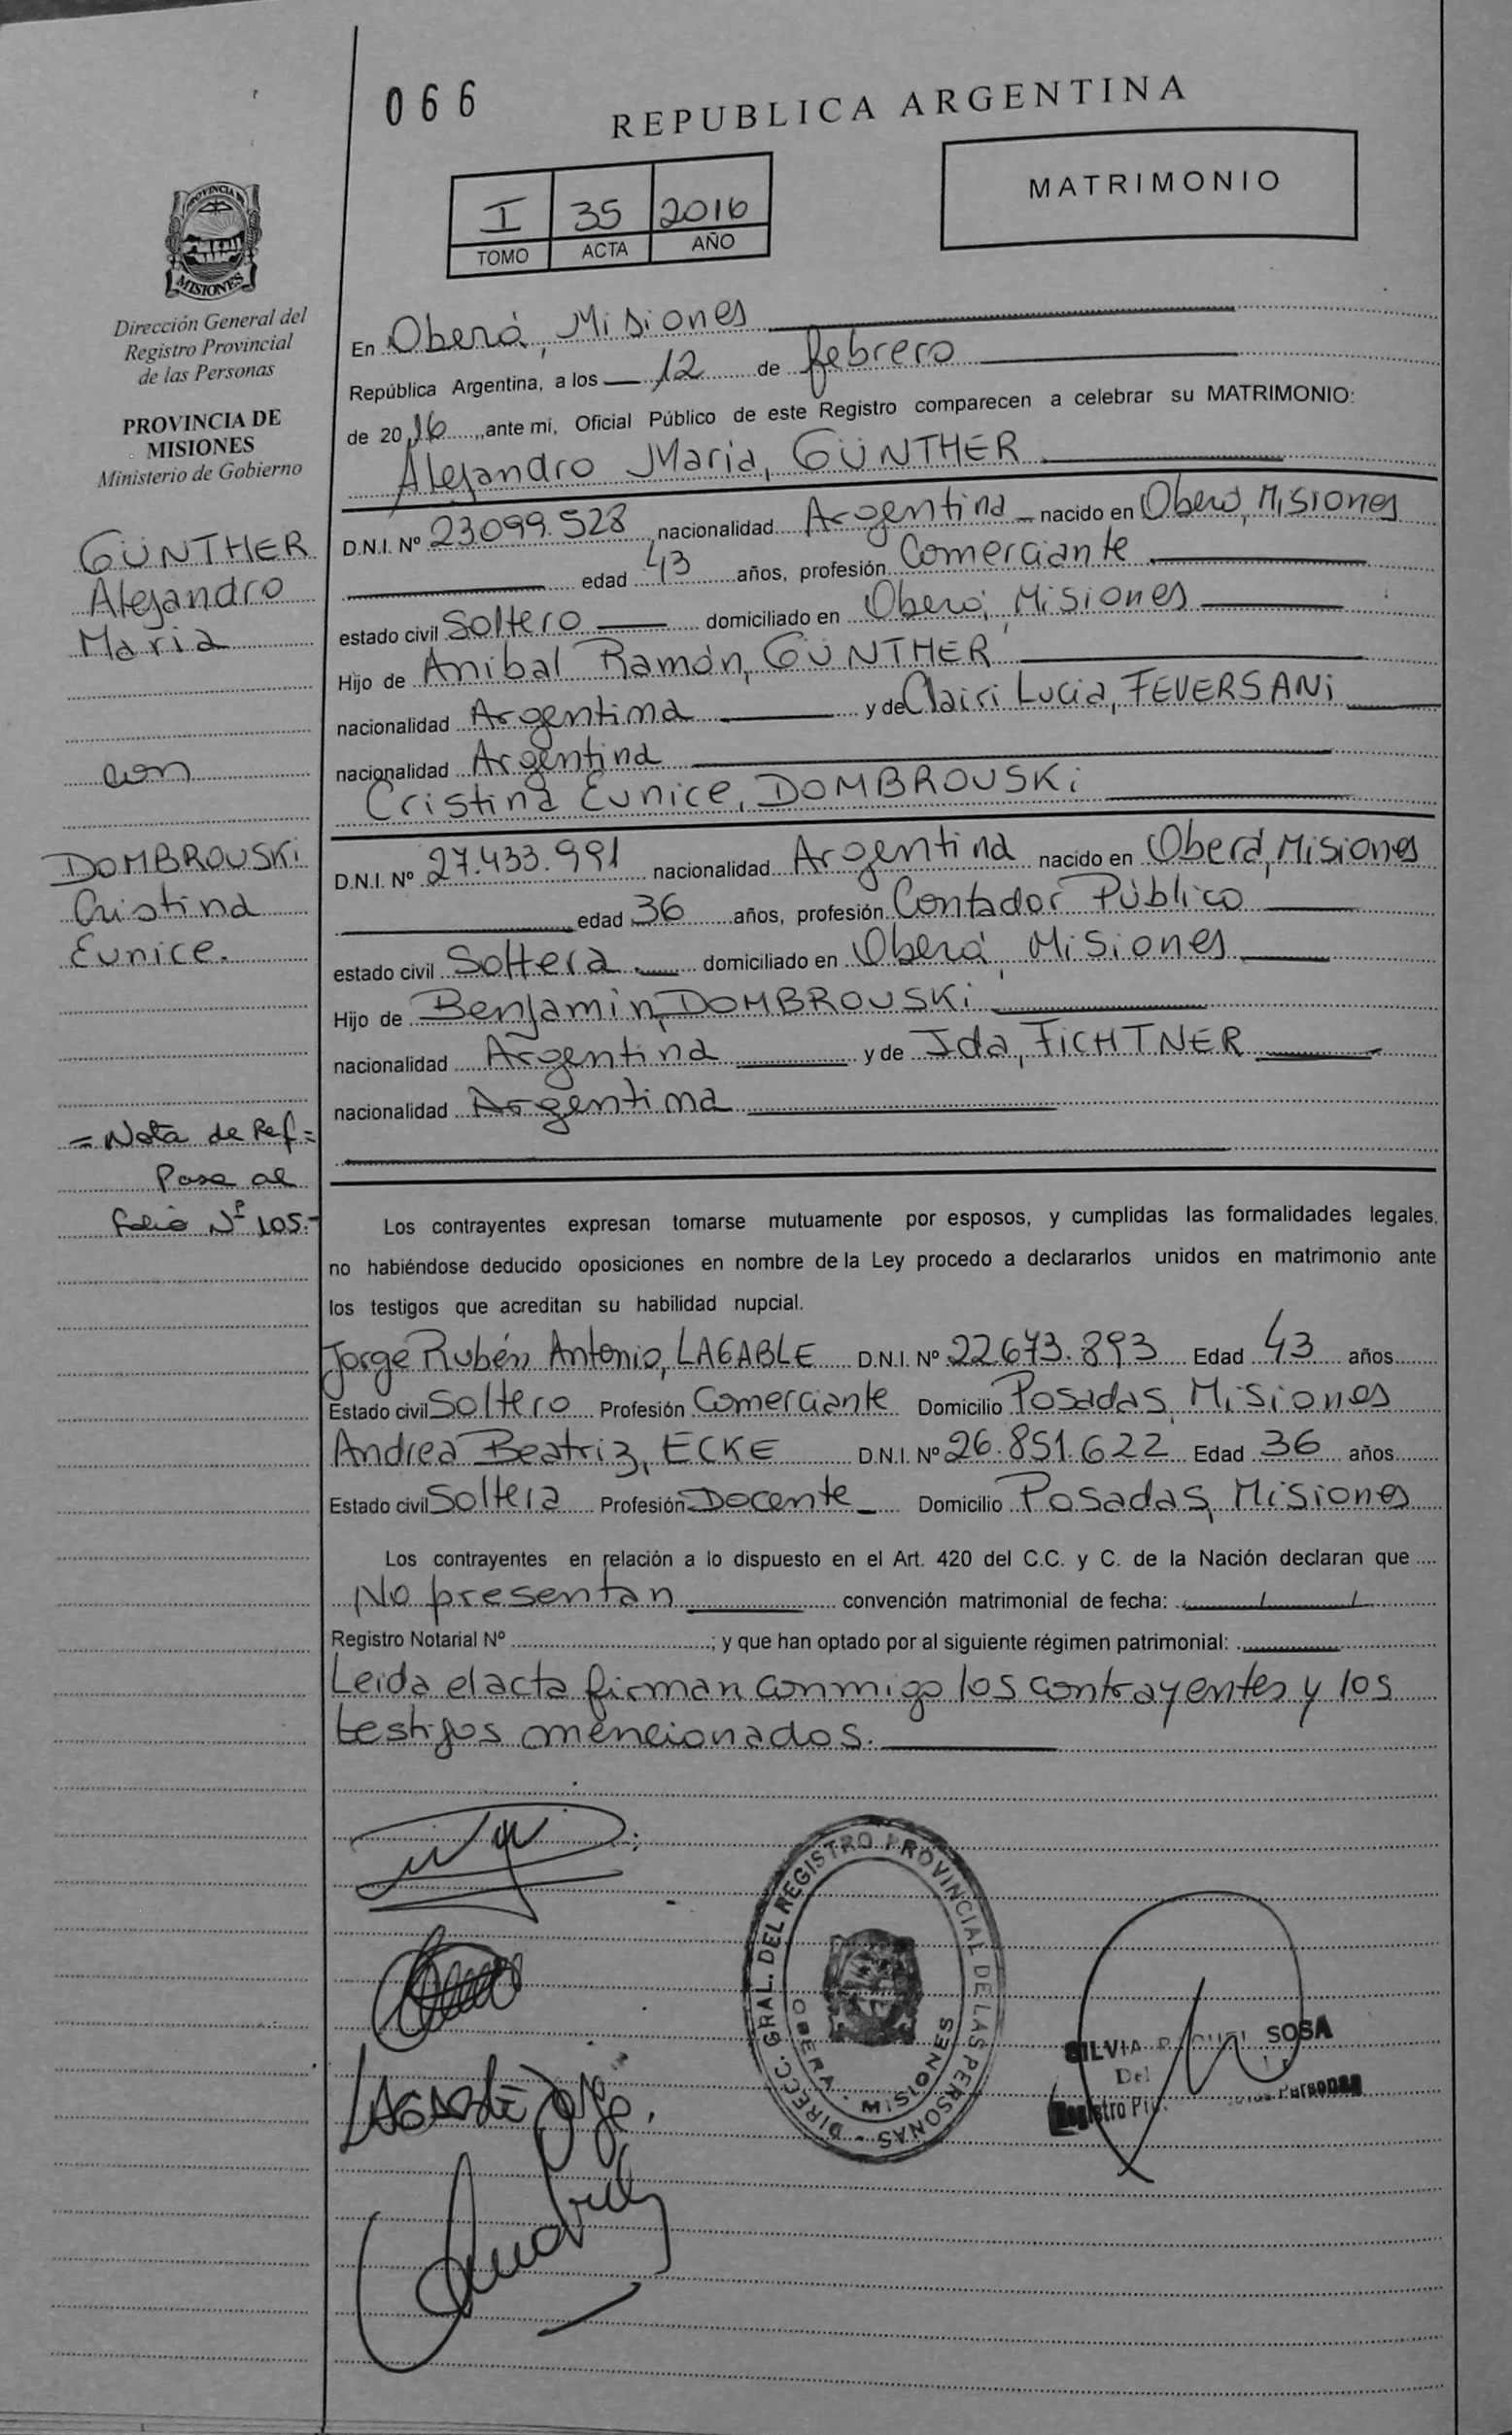 066
REPUBLICA ARGENTINA
MATRIMONIO
I 35 2016
TOMO ACTA AÑO
PROVINCIA DE
MISIONES
Dirección General del
Registro Provincial
de las Personas
PROVINCIA DE
MISIONES
Ministerio de Gobierno
GÜNTHER
Alejandro
Maria
con
DOMBROUSKi
Cristina
Eunice.
= Nota de Ref =
Pasa al
folio Nº 105.-
En Oberá, Misiones
República Argentina, a los 12 de febrero
de 2016, ante mí, Oficial Público de este Registro comparecen a celebrar su MATRIMONIO:
Alejandro Maria, GÜNTHER
D.N.I. Nº 23099.528 nacionalidad Argentina nacido en Oberá, Misiones
edad 43 años, profesión Comerciante
estado civil Soltero domiciliado en Oberá, Misiones
Hijo de Anibal Ramón, GÜNTHER
nacionalidad Argentina y de Clairi Lucia, FEVERSANi
nacionalidad Argentina
Cristina Eunice, DOMBROUSKi
D.N.I. Nº 27.433.991 nacionalidad Argentina nacido en Oberá, Misiones
edad 36 años, profesión Contador Público
estado civil Soltera domiciliado en Oberá, Misiones
Hijo de Benjamin, DOMBROUSKi
nacionalidad Argentina y de Ida, FiCHTNER
nacionalidad Argentina
Los contrayentes expresan tomarse mutuamente por esposos, y cumplidas las formalidades legales,
no habiéndose deducido oposiciones en nombre de la Ley procedo a declararlos unidos en matrimonio ante
los testigos que acreditan su habilidad nupcial.
Jorge Rubén Antonio, LAGABLE D.N.I. Nº 22.673.893 Edad 43 años
Estado civil Soltero Profesión Comerciante Domicilio Posadas, Misiones
Andrea Beatriz, ECKE D.N.I. Nº 26.851.622 Edad 36 años
Estado civil Soltera Profesión Docente Domicilio Posadas, Misiones
Los contrayentes en relación a lo dispuesto en el Art. 420 del C.C. y C. de la Nación declaran que
No presentan convención matrimonial de fecha: / /
Registro Notarial Nº ; y que han optado por al siguiente régimen patrimonial:
Leida el acta firman conmigo los contrayentes y los
testigos mencionados.
DIREC. GRAL. DEL REGISTRO PROVINCIAL DE LAS PERSONAS -
OBERA - MISIONES
SILVIA SOSA
Del
Registro Personas